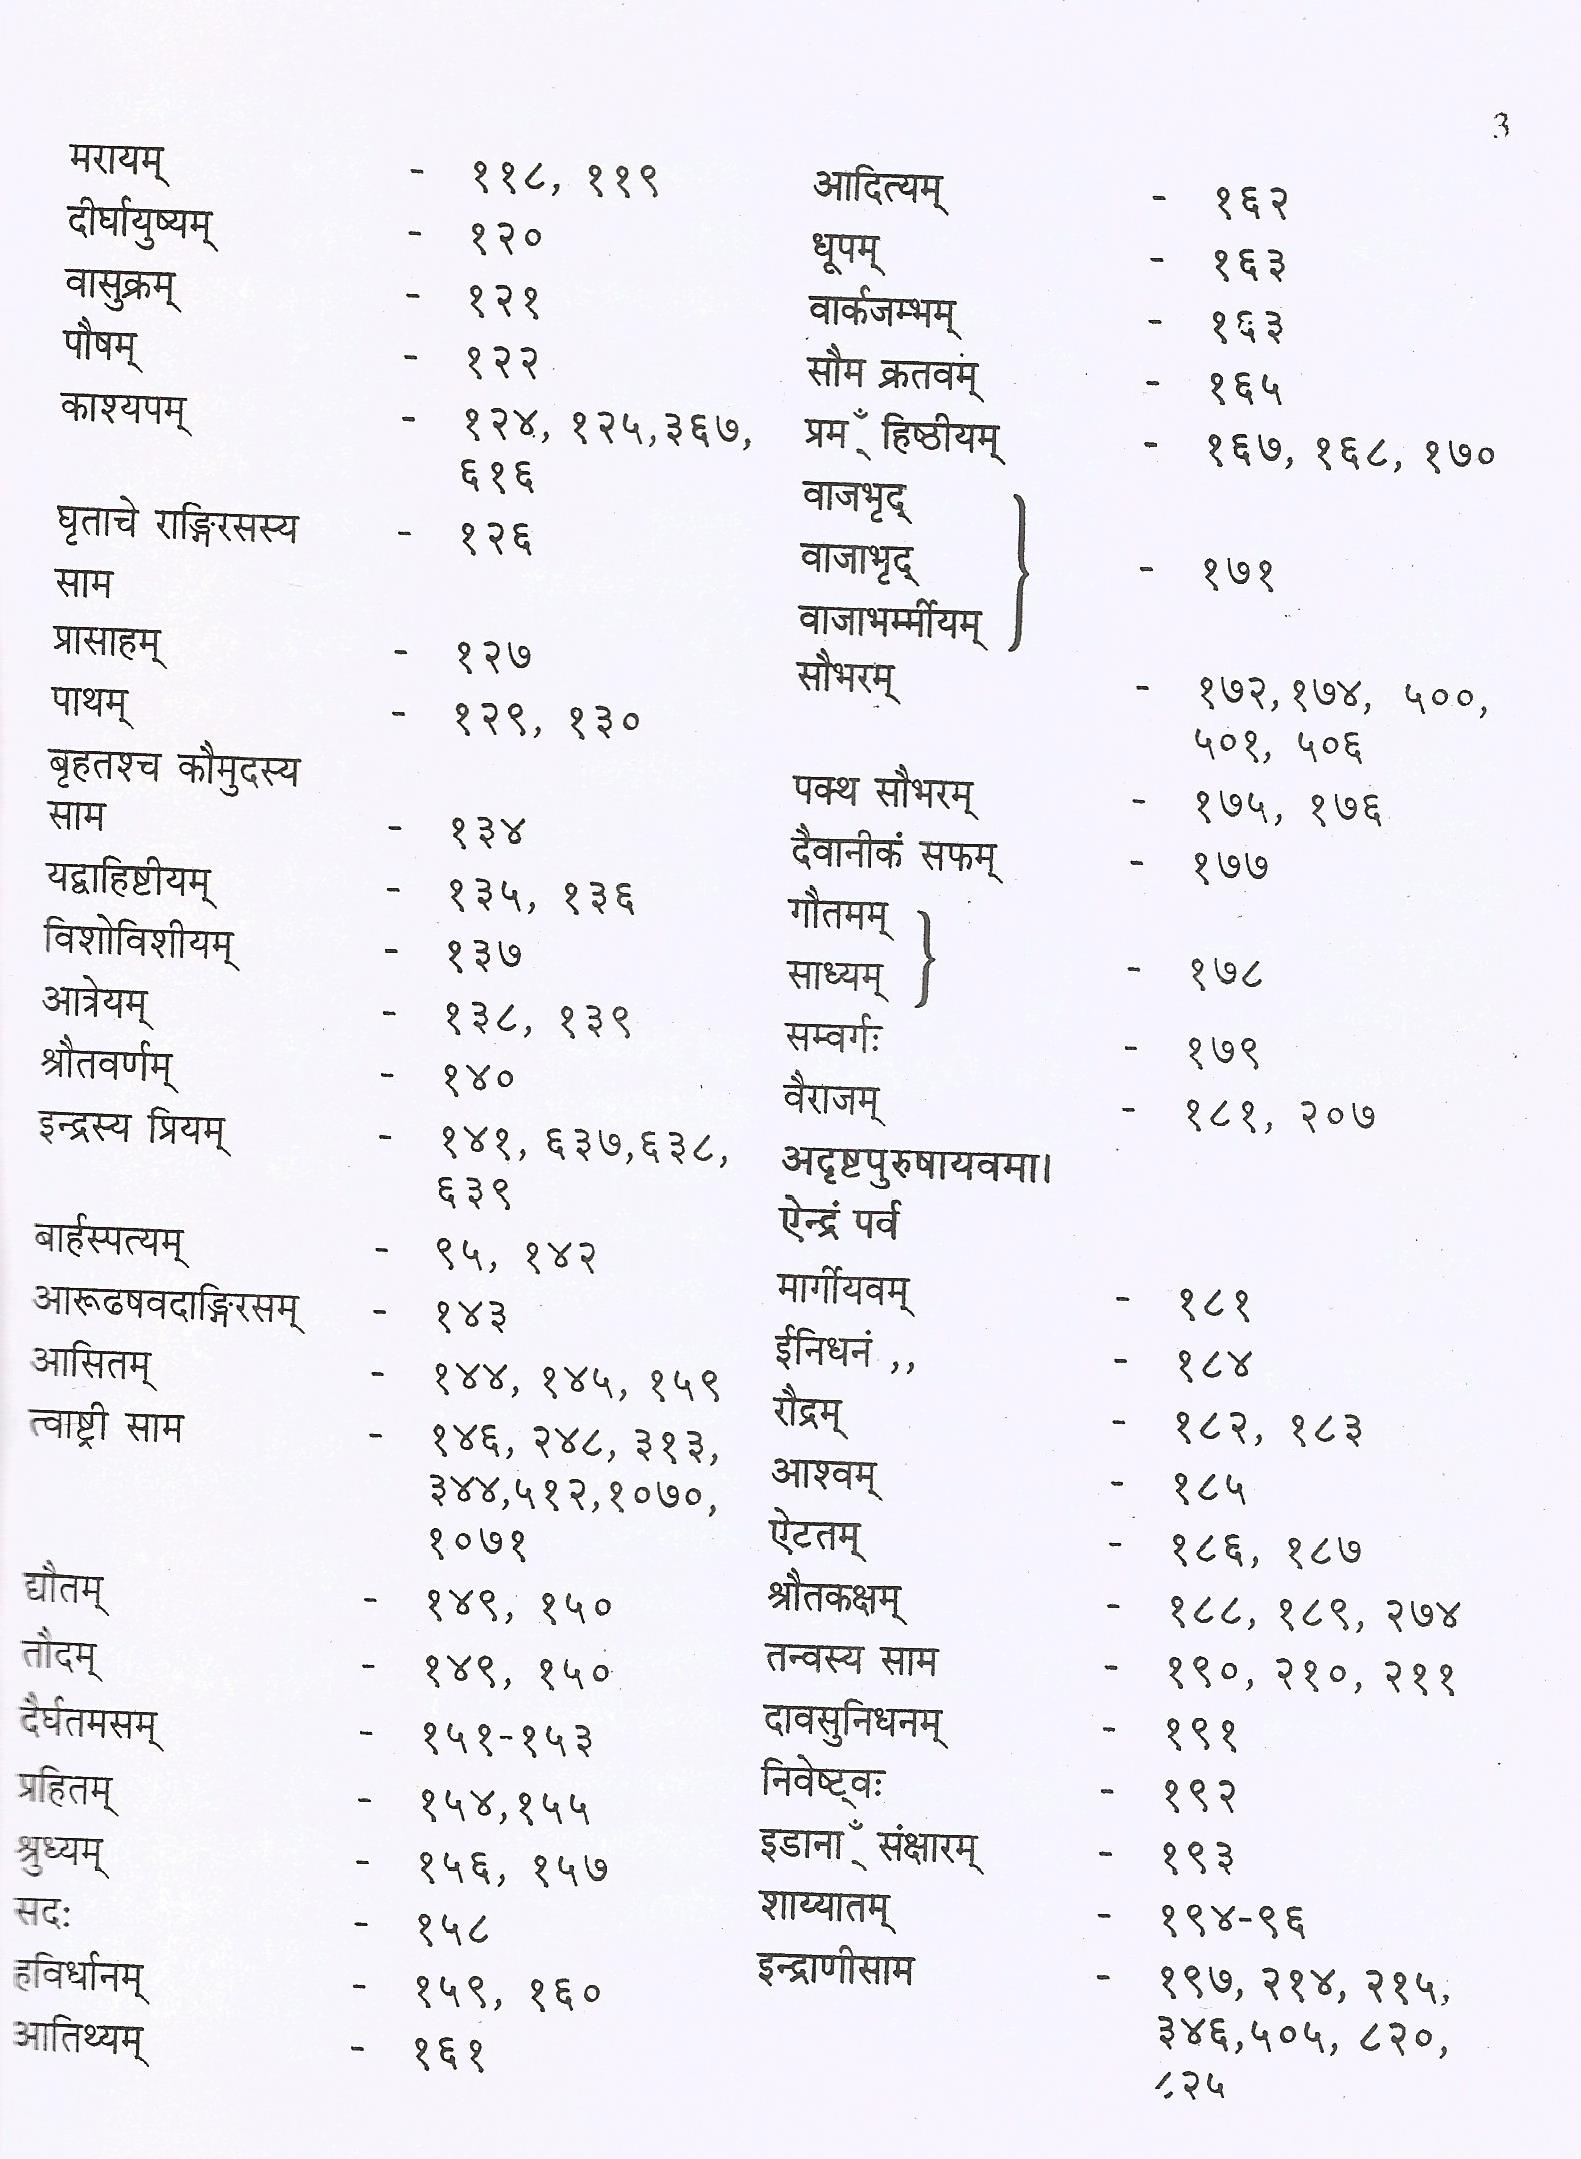 3
मरायम् - ११८, ११९
दीर्घायुष्यम् - १२०
वासुक्रम् - १२१
पौषम् - १२२
काश्यपम् - १२४, १२५,३६७,
६१६
घृताचे राङ्गिरसस्य - १२६
साम
प्रासाहम् - १२७
पाथम् - १२९, १३०
बृहतश्च कौमुदस्य
साम - १३४
यद्वाहिष्टीयम् - १३५, १३६
विशोविशीयम् - १३७
आत्रेयम् - १३८, १३९
श्रौतवर्णम् - १४०
इन्द्रस्य प्रियम् - १४१, ६३७,६३८,
६३९
बार्हस्पत्यम् - ९५, १४२
आरूढषवदाङ्गिरसम् - १४३
आसितम् - १४४, १४५, १५९
त्वाष्ट्री साम - १४६, २४८, ३१३,
३४४,५१२,१०७०,
१०७१
द्यौतम् - १४९, १५०
तौदम् - १४९, १५०
दैर्घतमसम् - १५१-१५३
प्रहितम् - १५४,१५५
श्रुध्यम् - १५६, १५७
सदः - १५८
हविर्धानम् - १५९, १६०
आतिथ्यम् - १६१
आदित्यम् - १६२
धूपम् - १६३
वार्कजम्भम् - १६३
सौम क्रतवम् - १६५
प्रम ँ् हिष्ठीयम् - १६७, १६८, १७०
वाजभृद्
वाजाभृद् - १७१
वाजाभर्म्मीयम्
सौभरम् - १७२,१७४, ५००,
५०१, ५०६
पक्थ सौभरम् - १७५, १७६
दैवानीकं सफम् - १७७
गौतमम्
साध्यम् - १७८
सम्वर्गः - १७९
वैराजम् - १८१, २०७
अदृष्टपुरुषायवमा।
ऐन्द्रं पर्व
मार्गीयवम् - १८१
ईनिधनं ,, - १८४
रौद्रम् - १८२, १८३
आश्वम् - १८५
ऐटतम् - १८६, १८७
श्रौतकक्षम् - १८८, १८९, २७४
तन्वस्य साम - १९०, २१०, २११
दावसुनिधनम् - १९१
निवेष्ट्वः - १९२
इडाना ँ् संक्षारम् - १९३
शाय्यातम् - १९४-९६
इन्द्राणीसाम - १९७, २१४, २१५,
३४६,५०५, ८२०,
८२५